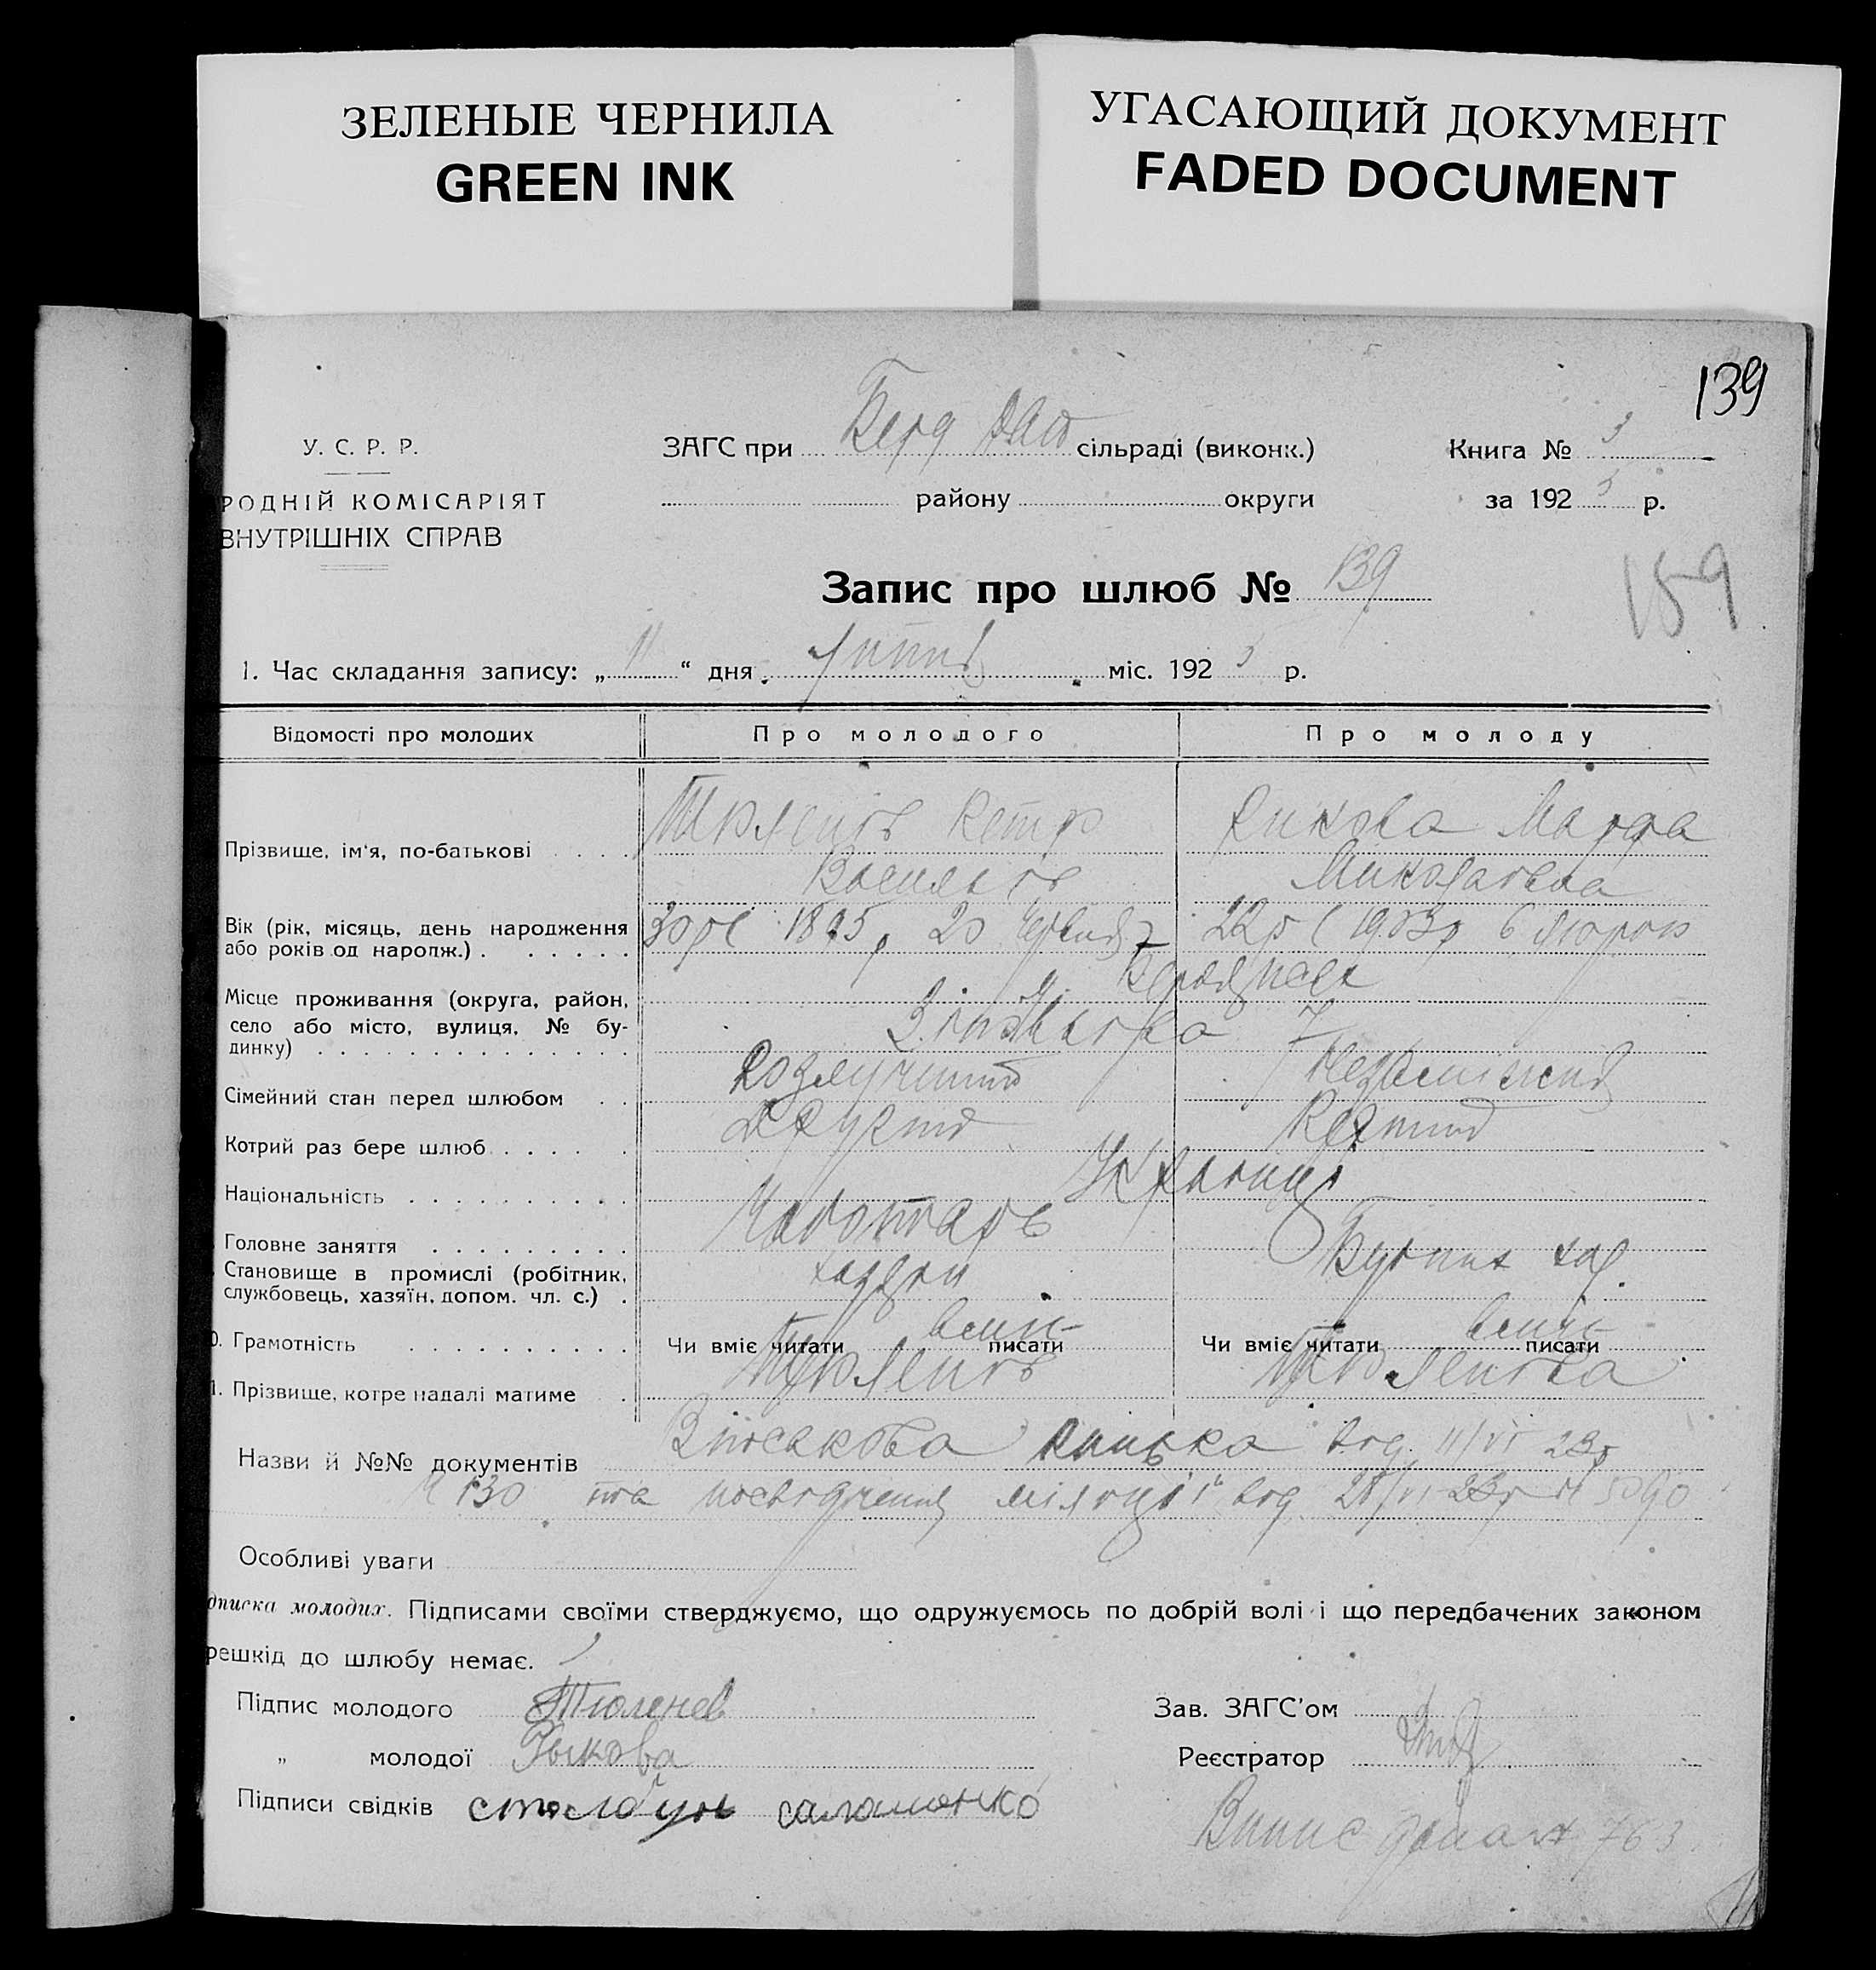 ЗЕЛЕНЫЕ ЧЕРНИЛА
GREEN INK
УГАСАЮЩИЙ ДОКУМЕНТ
FADED DOCUMENT
139
У. С. Р. Р.
ЗАГС при Берд сільраді (виконк.)
Книга № 3
РОДНІЙ КОМІСАРІЯТ
району округи
за 192 5 р.
ВНУТРІШНІХ СПРАВ
Запис про шлюб № 139
159
1. Час складання запису: „ 11 “ дня міс. 192 5 р.
Відомості про молодих
Про молодого
Про молоду
Прізвище, ім'я, по-батькові
Тюленів Петр
Васильів
Рикова Марфа
Миколаевна
Вік (рік, місяць, день народження
або років од народж.)
30 рс 1895 р 20 червня
22 р ( 1903 р 6
Місце проживання (округа, район,
село або місто, вулиця, № бу-
динку)
м. Бердянськ
7
Сімейний стан перед шлюбом
Розлучений
Незаміжня
Котрий раз бере шлюб
Другий
Перший
Національність
Українці
Головне заняття
Чоботарь
Становище в промислі (робітник,
службовець, хазяїн, допом. чл. с.)
хазяін
0. Грамотність
Чи вміє читати писати вмін-
Чи вміє читати писати вмін-
1. Прізвище, котре надалі матиме
Тюленів
Тюленева
Назви й №№ документів
Військова книжка від 11/VI 23р
№ 130 та посвідчення міліціі від 28/VI-23р № 5090
Особливі уваги
дписка молодих. Підписами своїми стверджуємо, що одружуємось по добрій волі і що передбачених законом
решкід до шлюбу немає.
Підпис молодого Тюленев
Зав. ЗАГС'ом
„ молодої Рыкова
Реєстратор
Підписи свідків столбун саломонко
Випис 763